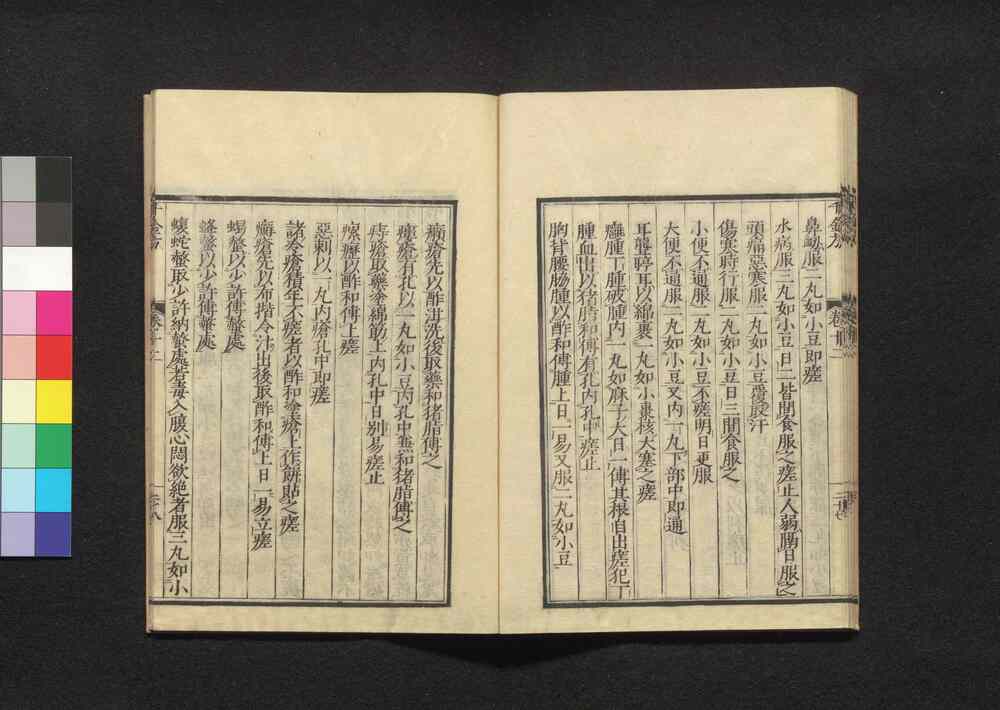 鼻衂服二丸如小豆即瘥
水病服三丸如小豆日二皆間食服之瘥止人弱隔日服之
頭痛惡寒服二丸如小豆覆取汗
傷寒時行服二丸如小豆日三間食服之
小便不通服二丸如小豆不瘥明日更服
大便不通服三丸如小豆又内一丸下部中即通
耳聾聤耳以綿裹一丸如小棗核大塞之瘥
癰腫丁腫破腫内一丸如麻子大日一傅其根自出瘥犯丁
腫血出以猪脂和傅有孔内孔中瘥止
胸背腰脇腫以酢和傅腫上日一易又服二丸如小豆
千金方
卷十二
二十七
千金方
卷十二
二十八
癘瘡先以酢泔洗後取藥和猪脂傅之
瘻瘡有孔以一丸如小豆内孔中兼和猪脂傅之
痔瘡取藥塗綿筯上内孔中日别易瘥止
瘰癧以酢和傅上瘥
惡刺以一丸内瘡孔中即瘥
諸冷瘡積年不瘥者以酢和塗瘡上作餅貼之瘥
癬瘡先以布揩令汁出後取酢和傅上日一易立瘥
蝎螫以少許傅螫處
蜂螫以少許傅螫處
蝮蛇螫取少許納螫處若毒入腹心悶欲絶者服三丸如小